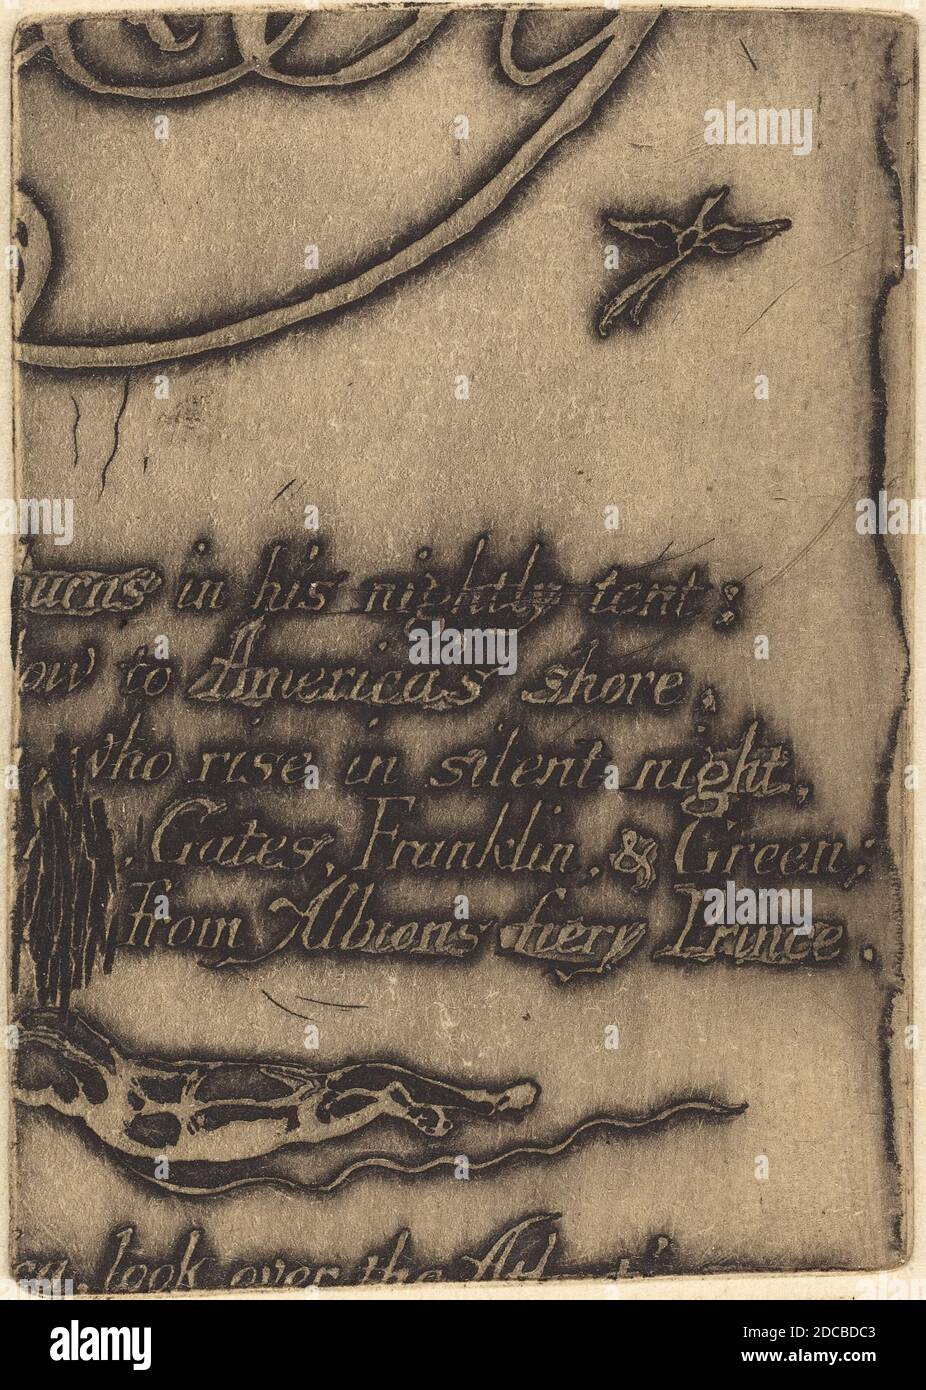 burns in his nightly tent;
ow to America's shore.
, who rise in silent night,
, Gates, Franklin, & Green;
From Albions fiery Prince.
look over the
alamy
alamy
alamy
Image ID: 2DCBDC3
www.alamy.com